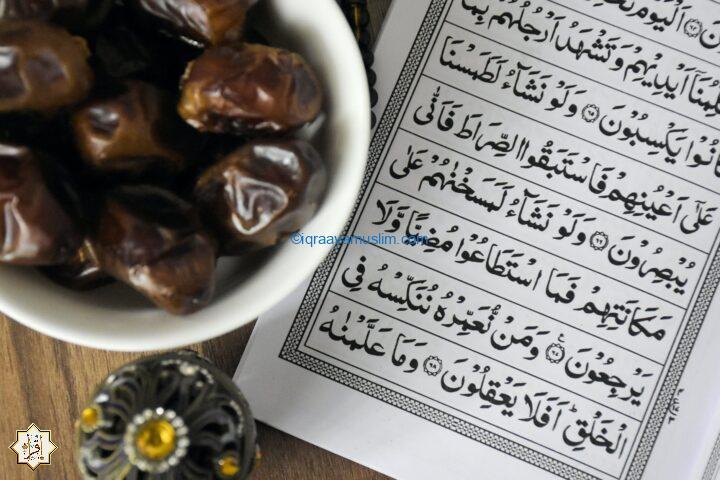 اَلْيَوْمَ
اَيْدِيْهِمْ وَتَشْهَدُ اَرْجُلُهُمْ بِمَا
يَكْسِبُوْنَ ﴿٦٥﴾ وَلَوْ نَشَآءُ لَطَمَسْنَا
عَلٰٓى اَعْيُنِهِمْ فَاسْتَبَقُوا الصِّرَاطَ فَاَنّٰى
يُبْصِرُوْنَ ﴿٦٦﴾ وَلَوْ نَشَآءُ لَمَسَخْنٰهُمْ عَلٰى
مَكَانَتِهِمْ فَمَا اسْتَطَاعُوْا مُضِيًّا وَّلَا
يَرْجِعُوْنَ ﴿٦٧﴾ وَمَنْ نُّعَمِّرْهُ نُنَكِّسْهُ فِى
الْخَلْقِ ؕ اَفَلَا يَعْقِلُوْنَ ﴿٦٨﴾ وَمَا عَلَّمْنٰهُ
©iqraayamuslim.com